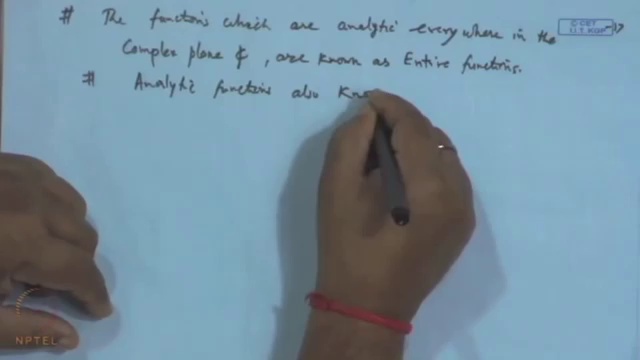 # The functions which are analytic everywhere in the
© CET
I.I.T. KGP
Complex plane ₵, are known as Entire functions.
# Analytic functions also Kno
NPTEL